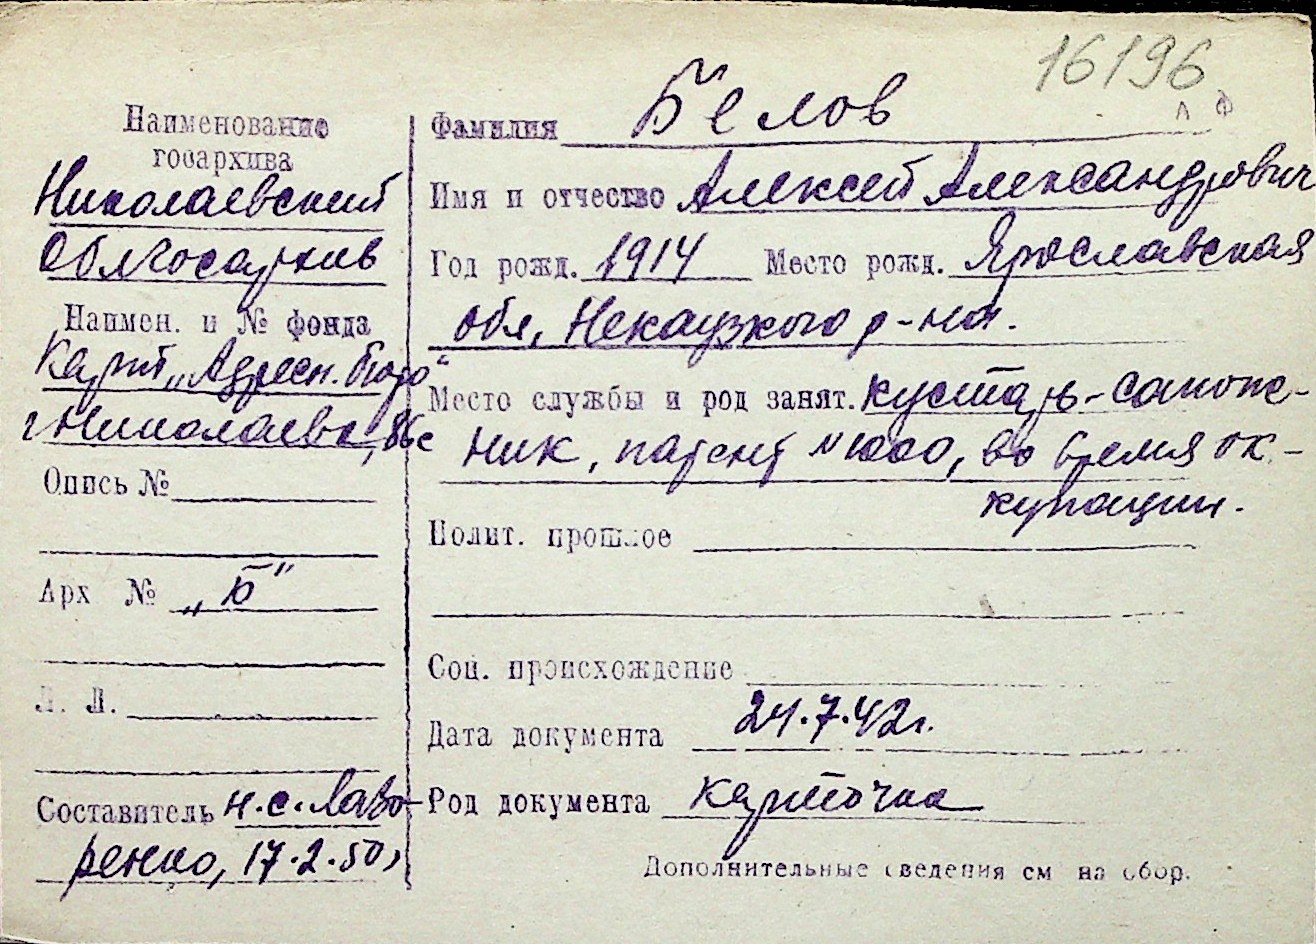 16196
Наименование
госархива
Николаевский
Облгосархив
Наимен. и № фонда
Карт. „Адресн. бюро"
г. Николаева,
Опись №
Арх № „Б"
Л. Л.
Составитель н.с. Лаво-
ренко, 17.2.50,
Фамилия Белов
Имя и отчество Алексей Александрович
Год рожд. 1914 Место рожд. Ярославская
обл, Некаузкого р-на.
Место службы и род занят. кустарь-сапож-
ник, патент №1000, во время ок-
купации.
Полит. прошлое
Соц. происхождение
Дата документа 24.7.42г.
Род документа карточка
Дополнительные сведения см на обор.